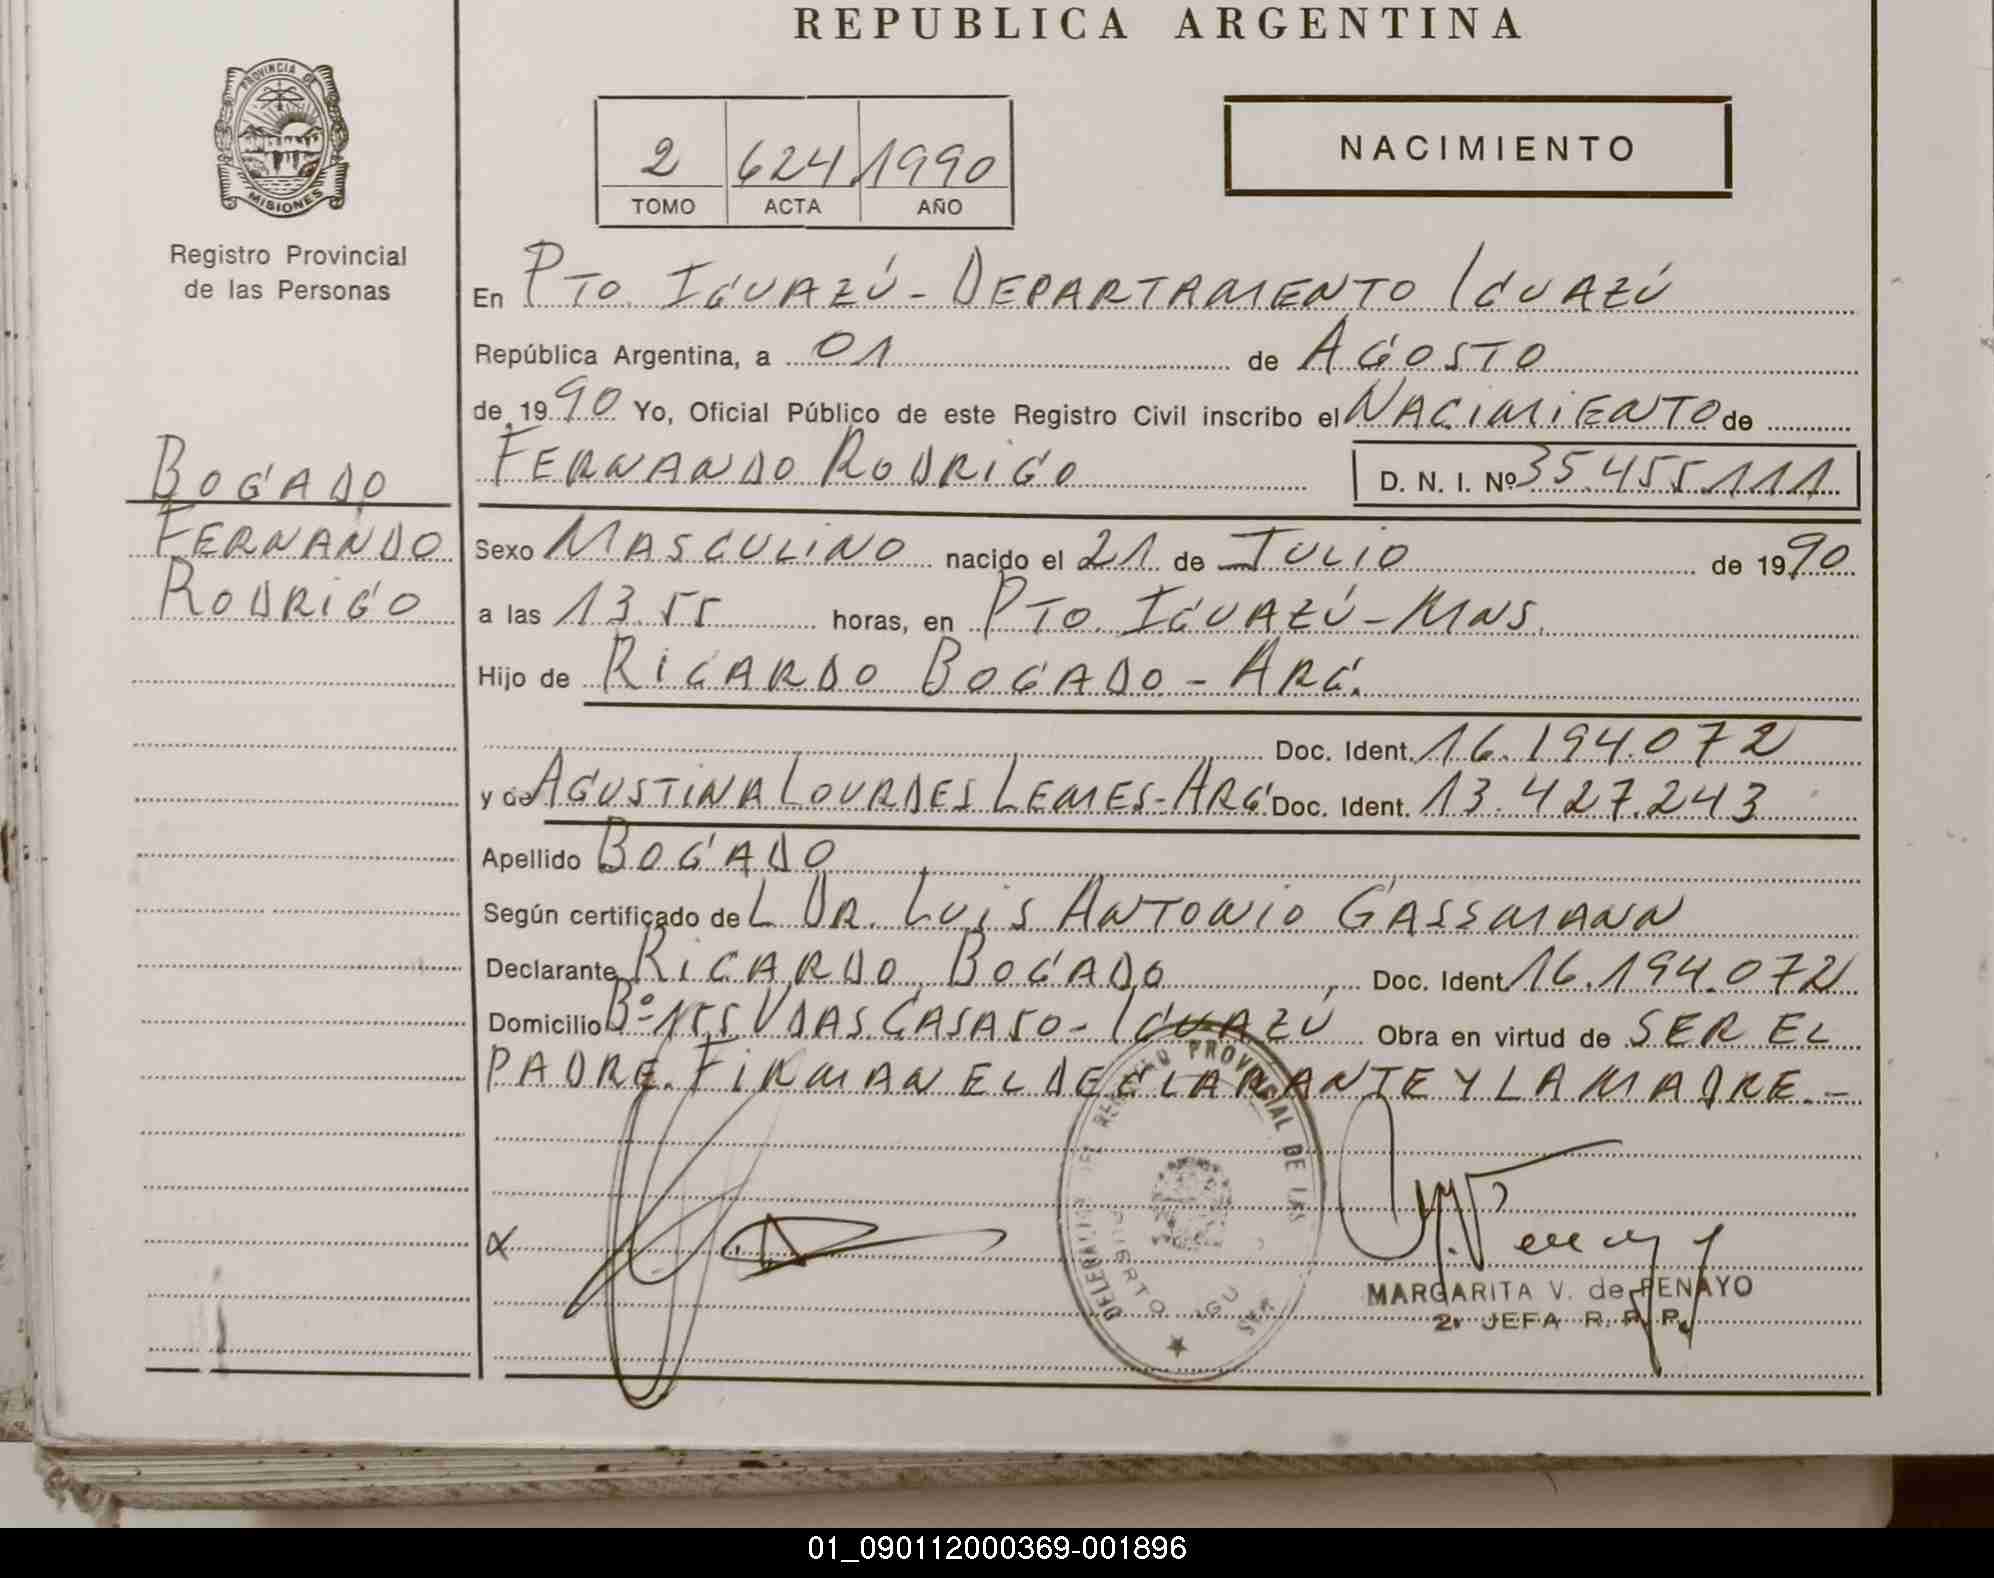 REPUBLICA ARGENTINA
PROVINCIA DE
MISIONES
Registro Provincial
de las Personas
2 624 1990
TOMO ACTA AÑO
NACIMIENTO
En PTO. IGUAZÚ - DEPARTAMENTO IGUAZÚ
República Argentina, a 01 de AGOSTO
de 1990 Yo, Oficial Público de este Registro Civil inscribo el NACIMIENTO de
FERNANDO RODRIGO D. N. I. Nº 35.455.111
BOGADO
FERNANDO
RODRIGO
Sexo MASCULINO nacido el 21 de JULIO de 1990
a las 13.55 horas, en PTO. IGUAZÚ - MNS.
Hijo de RICARDO BOGADO - ARG.
Doc. Ident. 16.194.072
y de AGUSTINA LOURDES LEMES - ARG Doc. Ident. 13.427.243
Apellido BOGADO
Según certificado de L DR. LUIS ANTONIO GASSMANN
Declarante RICARDO BOGADO Doc. Ident. 16.194.072
Domicilio Bº 155 VDAS. CASA 50 - IGUAZÚ Obra en virtud de SER EL
PADRE. FIRMAN EL DECLARANTE Y LA MADRE. -
DELEGACION DEL REGISTRO PROVINCIAL DE LAS
PUERTO
MARGARITA V. de PENAYO
2ª JEFA R. P. P.
01_090112000369-001896